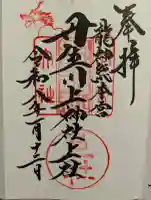 奉拝
龍神総本宮
丹生川上神社上社
令和六年一月十三日